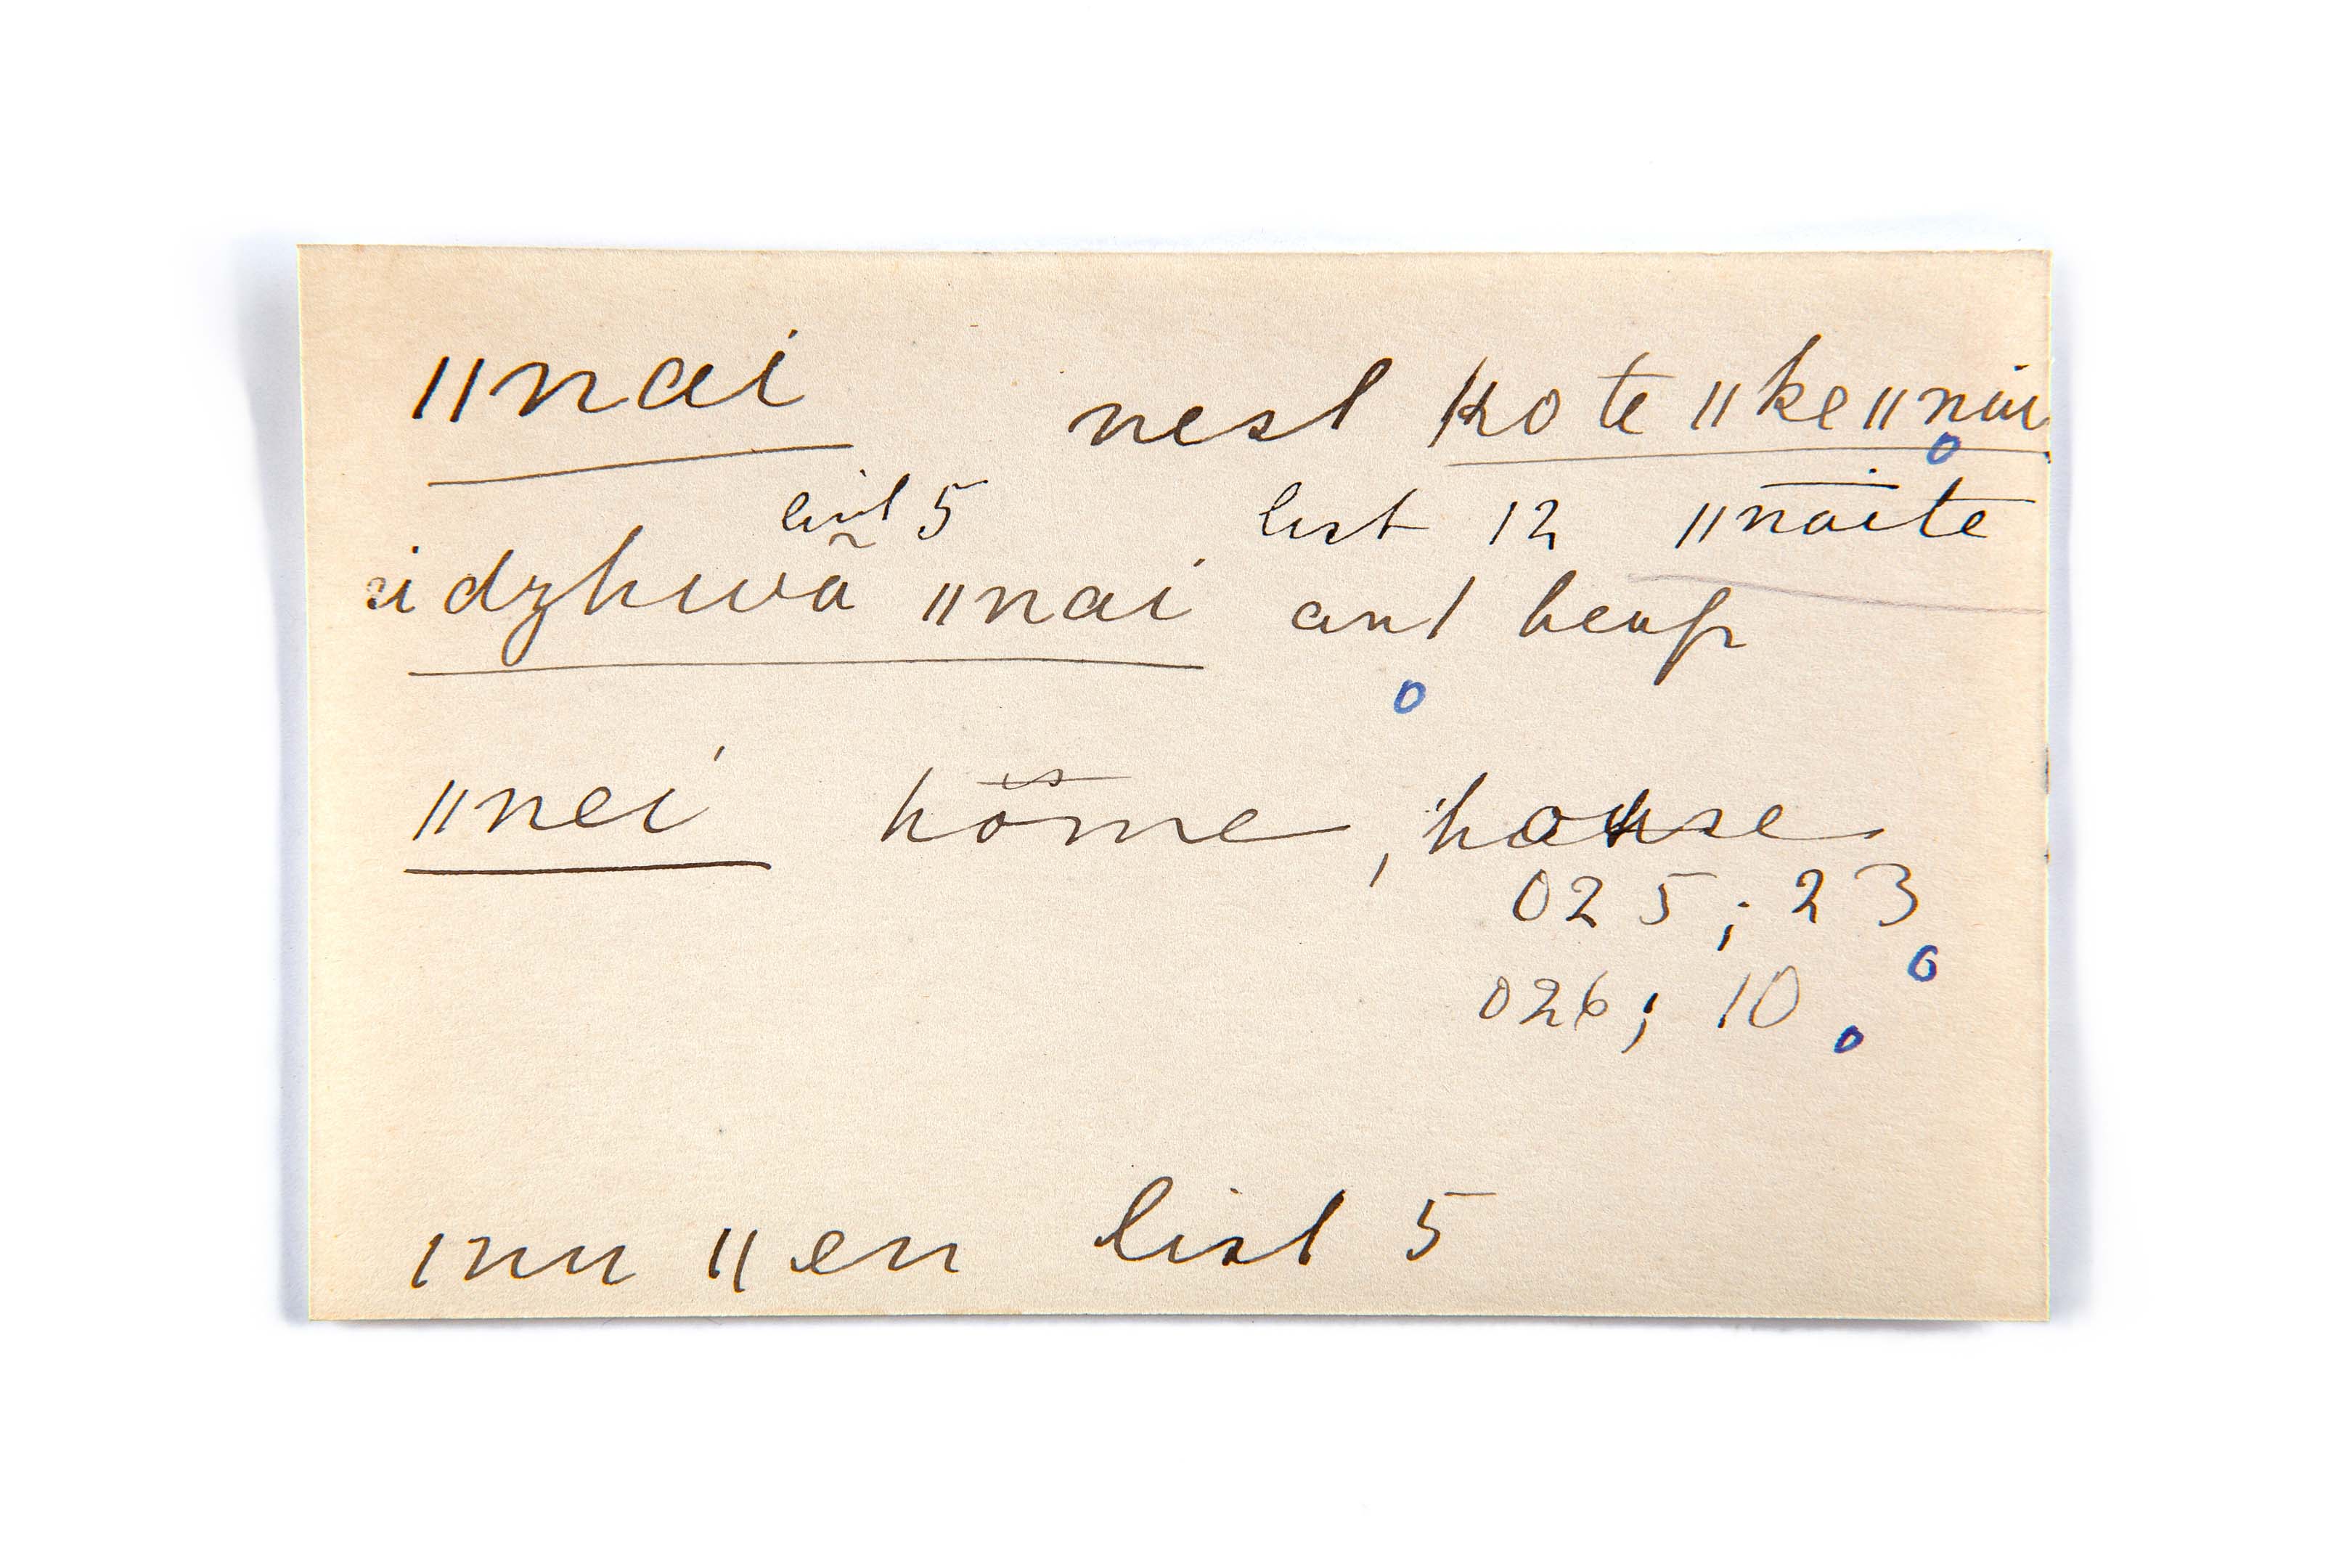 ǁnai nest ǁkote ǁkeǁnai
list 5 list 12 ǁnaite
dzhwã ǁnai ant heap
ǁnei home, house
025; 23
026; 10
ǀnu ǁen list 5